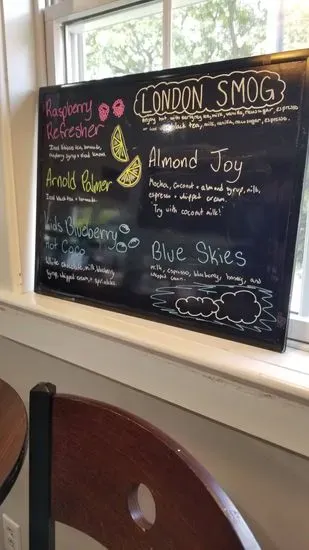 Raspberry
Refresher
Iced hibiscus tea, lemonade,
raspberry syrup + dried lemons.
Arnold Palmer
Iced black tea + lemonade.
Kids Blueberry
Hot Coco
White chocolate, milk, blueberry
syrup, whipped cream, + sprinkles.
LONDON SMOG
Enjoy hot with earl grey tea, milk, vanilla, raw sugar, espresso
or iced black tea, milk, vanilla, raw sugar, espresso.
Almond Joy
Mocha, coconut + almond syrup, milk,
espresso + whipped cream.
"Try with coconut milk!"
Blue Skies
milk, espresso, blueberry, honey, and
whipped cream.